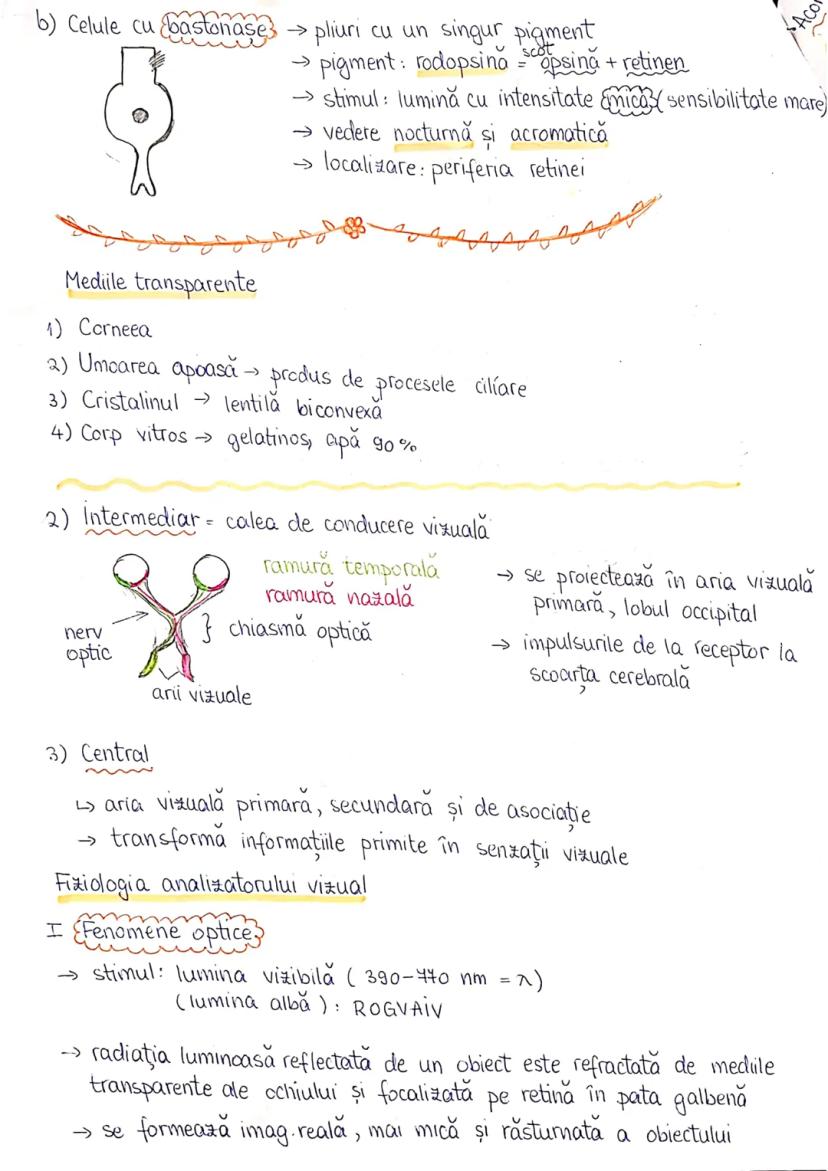 Acor
b) Celule cu bastonașe → pliuri cu un singur pigment
→ pigment: rodopsină = scotopsină + retinen
→ stimul: lumină cu intensitate mică (sensibilitate mare)
→ vedere nocturnă și acromatică
→ localizare: periferia retinei
Mediile transparente
1) Corneea
2) Umoarea apoasă → produs de procesele ciliare
3) Cristalinul → lentilă biconvexă
4) Corp vitros → gelatinos, apă 90%
2) Intermediar = calea de conducere vizuală
ramură temporală
ramură nazală
nerv optic
} chiasmă optică
arii vizuale
→ se proiectează în aria vizuală
primară, lobul occipital
→ impulsurile de la receptor la
scoarța cerebrală
3) Central
↳ aria vizuală primară, secundară și de asociație
→ transformă informațiile primite în senzații vizuale
Fiziologia analizatorului vizual
I Fenomene optice
→ stimul: lumina vizibilă (390-770 nm = λ)
(lumina albă): ROGVAIV
→ radiația luminoasă reflectată de un obiect este refractată de mediile
transparente ale ochiului și focalizată pe retină în pata galbenă
→ se formează imag. reală, mai mică și răsturnată a obiectului